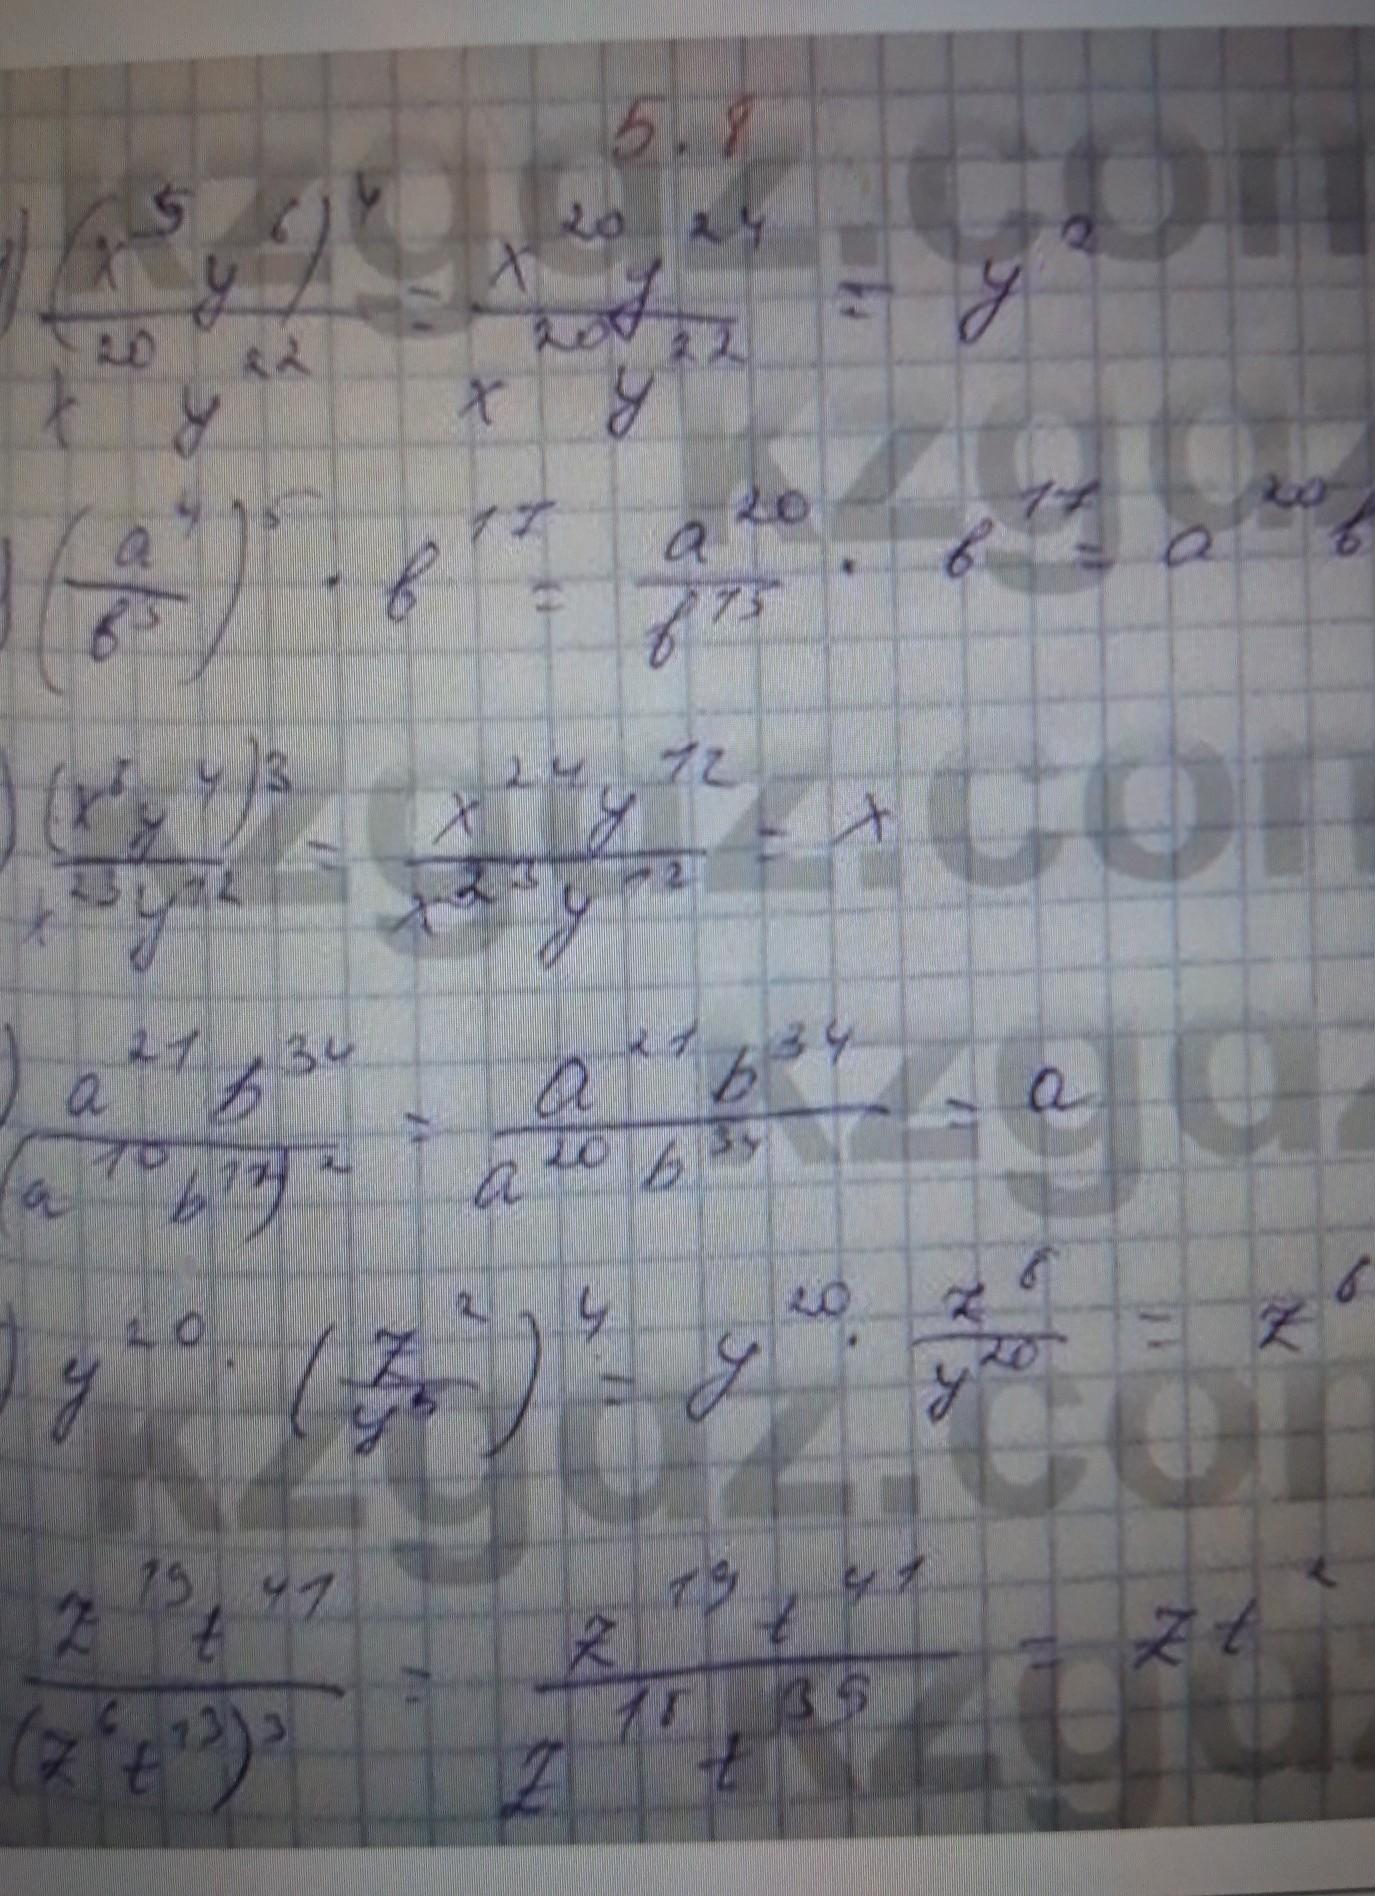 5.8
1) (x⁵y⁶)⁴ / x²⁰y²² = x²⁰y²⁴ / x²⁰y²² = y²
) (a⁴ / b³)⁵ · b¹⁷ = a²⁰ / b¹⁵ · b¹⁷ = a²⁰b
) (x⁸y⁴)³ / x²³y¹² = x²⁴y¹² / x²³y¹² = x
) a²¹b³⁴ / (a¹⁰b¹⁷)² = a²¹b³⁴ / a²⁰b³⁴ = a
) y²⁰ · (z² / y⁵)⁴ = y²⁰ · z⁸ / y²⁰ = z⁸
z¹⁹t⁴¹ / (z⁶t¹³)³ = z¹⁹t⁴¹ / z¹⁸t³⁹ = zt²
kzgdz.com